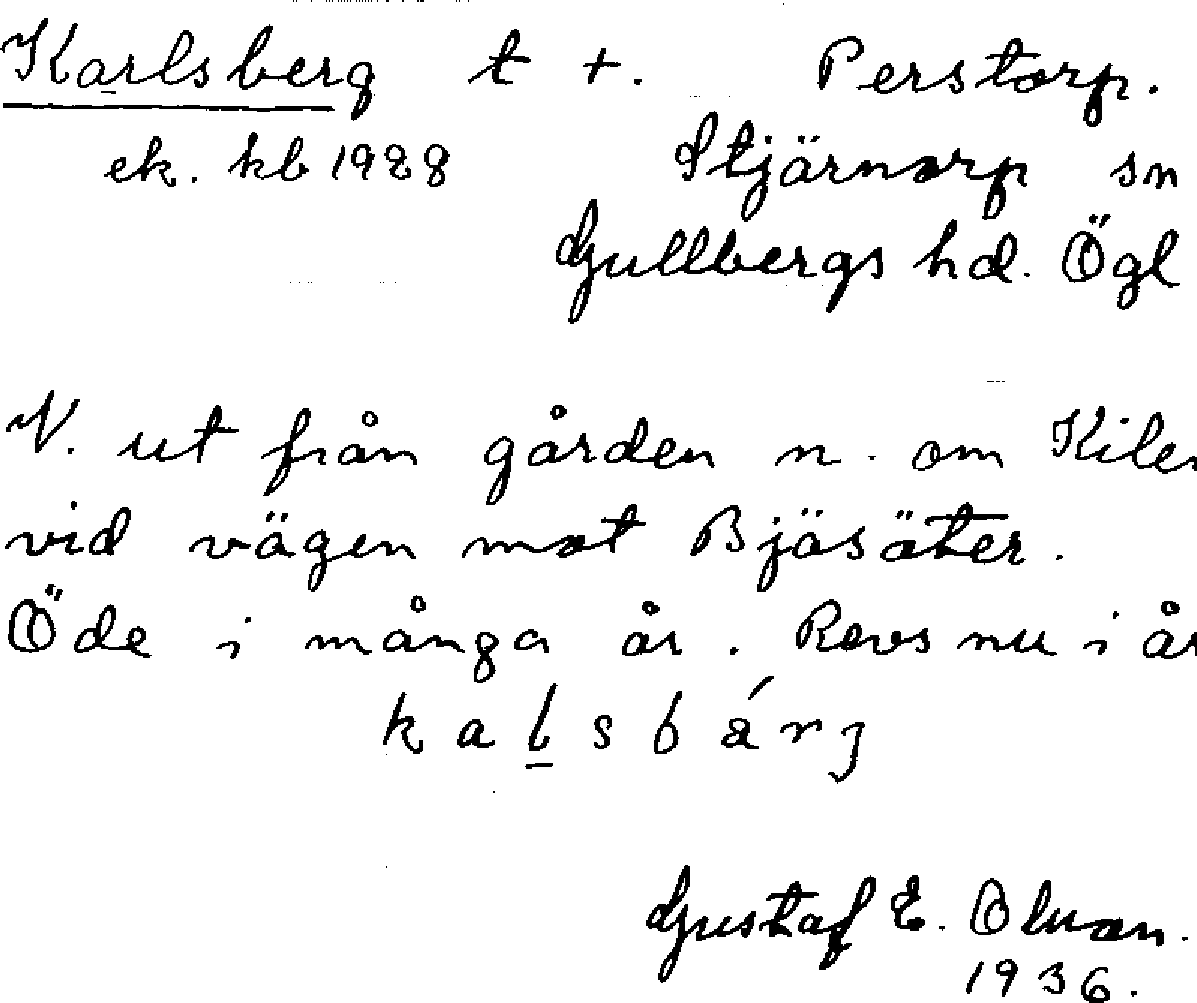 Karlsberg t +. Perstorp.
ek. kb 1928 Stjärnorp sn
Gullbergs hd. Ögl
V. ut från gården n. om Kilen
vid vägen mot Bjäsäter.
Öde i många år. Revs nu i år
kalsbárj
Gustaf E. Olson.
1936.